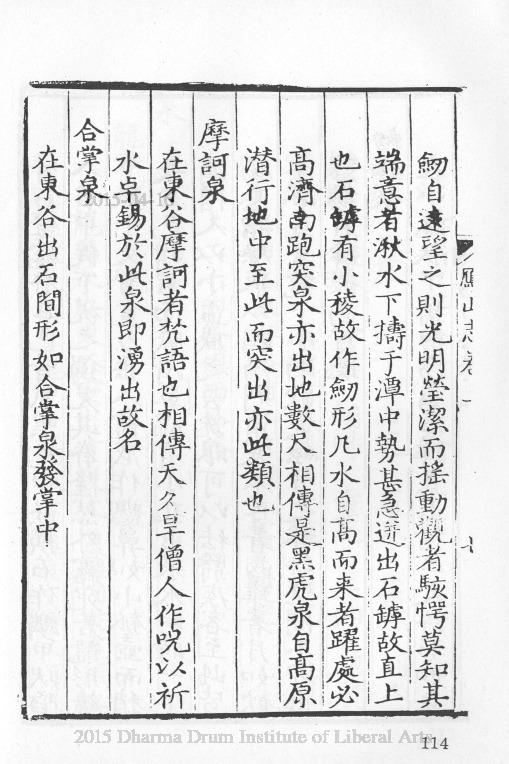 鴈山志卷一
七
劒自遠望之則光明瑩潔而搖動觀者駭愕莫知其
端意者湫水下擣于潭中勢甚急迸出石罅故直上
也石罅有小稜故作劒形凡水自髙而来者躍處必
髙濟南跑突泉亦出地數尺相傳是黑虎泉自髙原
潜行地中至此而突出亦此類也
摩訶泉
在東谷摩訶者梵語也相傳天久旱僧人作呪以祈
水卓錫於此泉即湧出故名
合掌泉
在東谷出石間形如合掌泉發掌中
2015-04-10
2015 Dharma Drum Institute of Liberal Arts
114